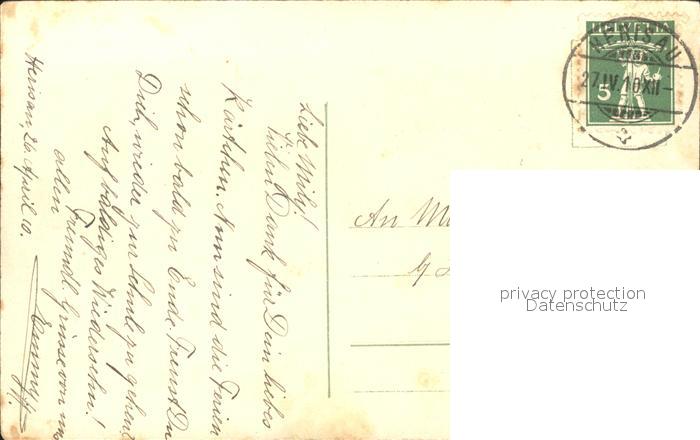 Liebe Mily!
Vielen Dank für Dein liebes
Kärtchen. Nun sind die Ferien
schon bald zu Ende. Freust Du
Dich, wieder zur Schule zu gehen?
Auf baldiges Wiedersehn!
Freundl. Grüsse von uns
allen
Herisau, 26. April 10.
An
HELVETIA
HERISAU
27.IV.10XII-
5
privacy protection
Datenschutz